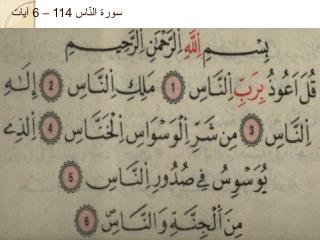 سورة النّاس 114 – 6 آيات
بِسْمِ اِللَّهِ اِلرَّحْمَٰنِ اِلرَّحِيمِ
قُلَ اَعُوذُ بِرَبِّ اِلنَّاسِ 1 مَلِكِ اِلنَّاسِ 2 إِلَٰهِ
اِلنَّاسِ 3 مِن شَرِّ اِلْوَسْوَاسِ اِلْخَنَّاسِ 4 اِلذِے
يُوَسْوِسُ فِے صُدُورِ اِلنَّاسِ 5
مِنَ اَلْجِنَّةِ وَالنَّاسِ 6